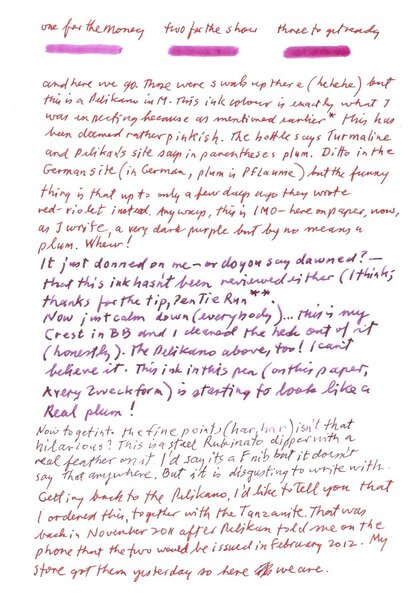 one for the money two for the show three to get ready
and here we go. Those were swabs up there (hehehe) but
this is a Pelikano in M. This ink colour is exactly what I
was expecting because as mentioned earlier* this has
been deemed rather pinkish. The bottle says Turmaline
and Pelikan's site says in parentheses plum. Ditto in the
German site (in German, plum is PFLaume) but the funny
thing is that up to only a few days ago they wrote
red-violet instead. Anyways, this is IMO-here on paper, now,
as I write, a very dark purple but by no means a
plum. Whew!
It just donned on me - or do you say dawned? -
that this ink hasn't been reviewed either (I think;
thanks for the tip, Zen Tie Run**.
Now just calm down (everybody)... this is my
Crest in BB and I cleaned the heck out of it
(honestly). The Pelikano above, too! I can't
believe it. This ink in this pen (on this paper,
Avery Zweckform) is starting to look like a
Real plum!
Now to get into the fine points (har, har) isn't that
hilarious? This is a steel Rubinato dipper with a
real feather on it. I'd say its a F nib but it doesn't
say that anywhere. But it is disgusting to write with.
Getting back to the Pelikano, I'd like to Tell you that
I ordered this, together with the Tanzanite. That was
back in November 2011 after Pelikan told me on the
phone that the two would be issued in February 2012. My
store got them yesterday so here we are.